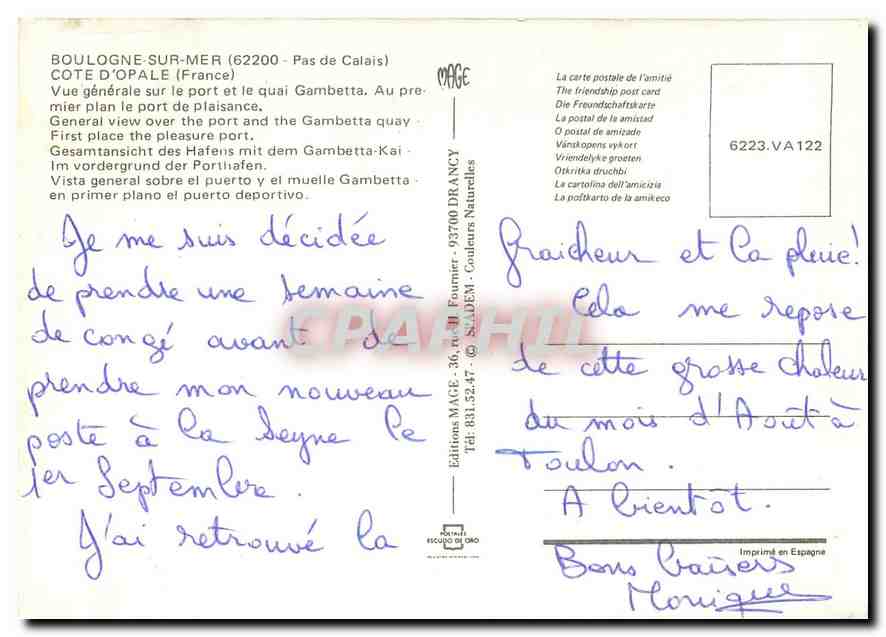 BOULOGNE-SUR-MER (62200 - Pas de Calais)
COTE D'OPALE (France)
Vue générale sur le port et le quai Gambetta. Au pre-
mier plan le port de plaisance.
General view over the port and the Gambetta quay -
First place the pleasure port.
Gesamtansicht des Hafens mit dem Gambetta-Kai -
Im vordergrund der Porthafen.
Vista general sobre el puerto y el muelle Gambetta -
en primer plano el puerto deportivo.
Je me suis décidée
de prendre une semaine
de congé avant de
prendre mon nouveau
poste à la Seyne le
1er Septembre.
J'ai retrouvé la
MAGE
Editions MAGE - 36, rue H. Fournier - 93700 DRANCY
Tél: 831.52.47 - © SPADEM - Couleurs Naturelles
POSTALES
ESCUDO DE ORO
La carte postale de l'amitié
The friendship post card
Die Freundschaftskarte
La postal de la amistad
O postal de amizade
Vänskopens vykort
Vriendelyke groeten
Otkritka druchbi
La cartolina dell'amicizia
La poŝtkarto de la amikeco
6223.VA122
fraicheur et la pluie!
Cela me repose
de cette grosse chaleur
du mois d'Août à
Toulon.
A bientôt.
Imprimé en Espagne
Bons baisers
Monique
CPAPHIL